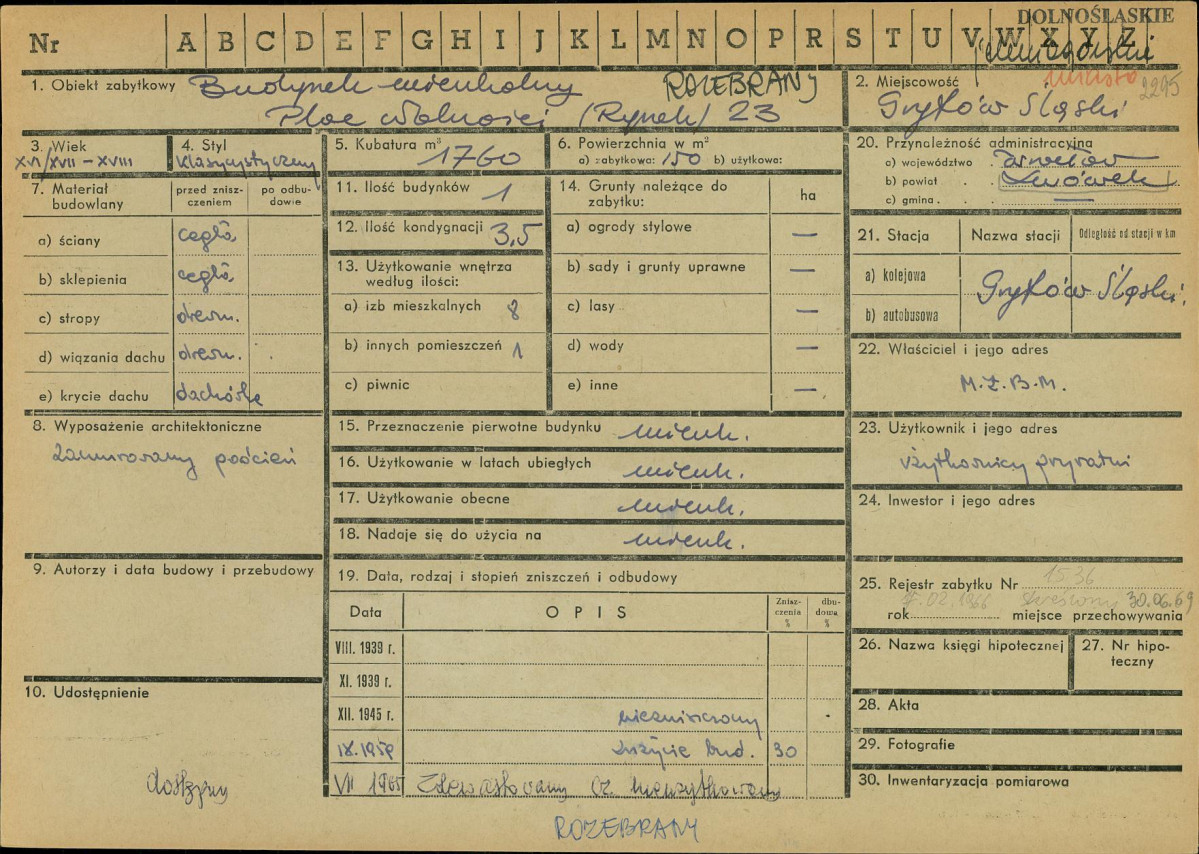 DOLNOŚLĄSKIE
Nr A B C D E F G H I J K L M N O P R S T U V W X Y Z
miasto 2295
1. Obiekt zabytkowy Budynek mieszkalny ROZEBRANY
Plac Wolności (Rynek) 23
2. Miejscowość
Gryfów Śląski
3. Wiek
XVI/XVII – XVIII
4. Styl
klasycystyczny
5. Kubatura m³ 1760
6. Powierzchnia w m²
a) zabytkowa: 150 b) użytkowa:
20. Przynależność administracyjna
a) województwo . Wrocław
b) powiat . . Lwówek
c) gmina . . —
7. Materiał budowlany
przed zniszczeniem
po odbudowie
a) ściany cegła
b) sklepienia cegła
c) stropy drewn.
d) wiązania dachu drewn.
e) krycie dachu dachówka
11. Ilość budynków 1
12. Ilość kondygnacji 3,5
13. Użytkowanie wnętrza
według ilości:
a) izb mieszkalnych 8
b) innych pomieszczeń 1
c) piwnic
14. Grunty należące do
zabytku:
ha
a) ogrody stylowe —
b) sady i grunty uprawne —
c) lasy —
d) wody —
e) inne —
21. Stacja Nazwa stacji Odległość od stacji w km
a) kolejowa
Gryfów Śląski
b) autobusowa
22. Właściciel i jego adres
M.Z.B.M.
8. Wyposażenie architektoniczne
zamurowany podcień
15. Przeznaczenie pierwotne budynku mieszk.
16. Użytkowanie w latach ubiegłych mieszk.
17. Użytkowanie obecne mieszk.
18. Nadaje się do użycia na mieszk.
23. Użytkownik i jego adres
użytkownicy prywatni
24. Inwestor i jego adres
9. Autorzy i data budowy i przebudowy
19. Data, rodzaj i stopień zniszczeń i odbudowy
Data OPIS Zniszczenia % dbudowa %
VIII. 1939 r.
XI. 1939 r.
XII. 1945 r. niezniszczony
IX.1959 zużycie bud. 30
VII 1965 Zdewastowany cz. nieużytkowany
25. Rejestr zabytku Nr 1536
7.02.1966 skreślony 30.06.69
rok miejsce przechowywania
26. Nazwa księgi hipotecznej
27. Nr hipoteczny
10. Udostępnienie
dostępny
28. Akta
29. Fotografie
30. Inwentaryzacja pomiarowa
ROZEBRANY